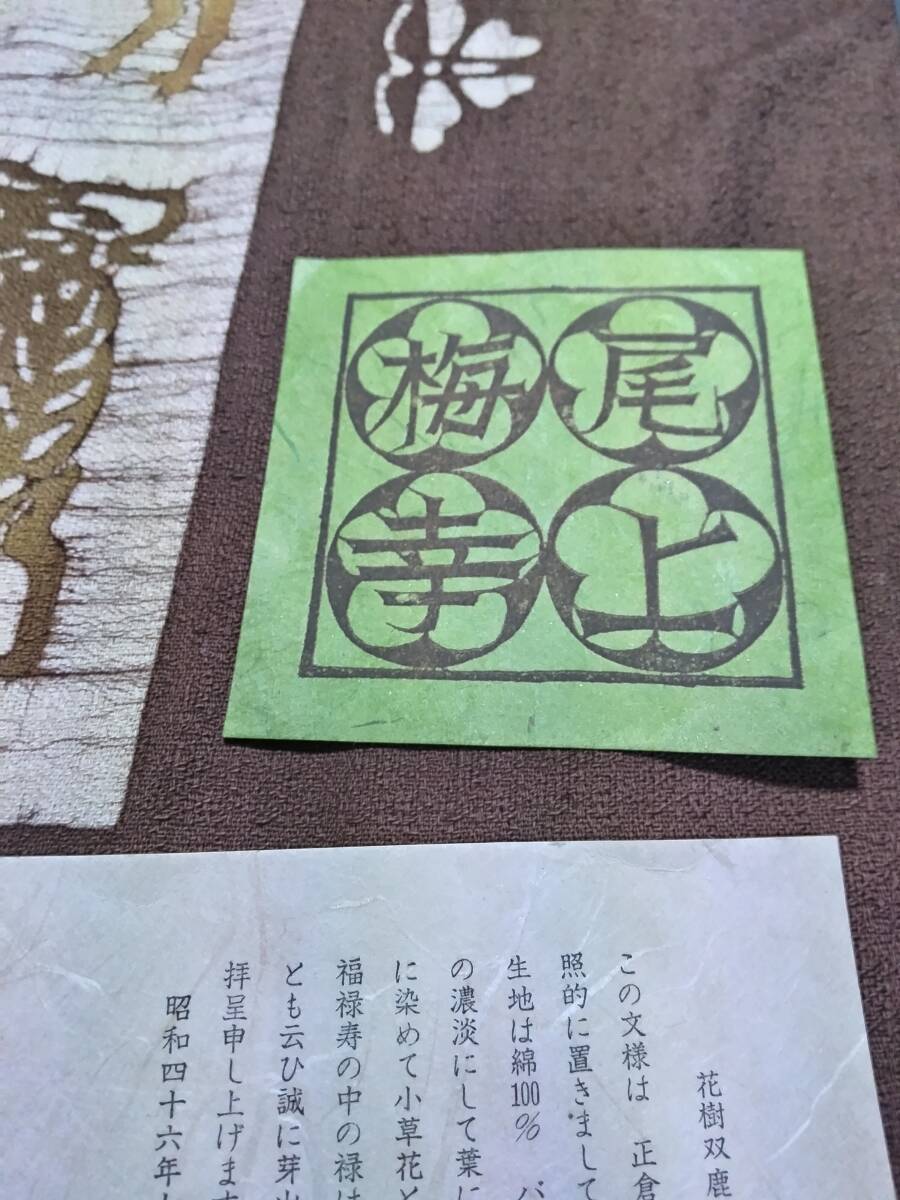 尾上
梅幸
花樹双鹿
この文様は 正倉
照的に置きまして
生地は綿100% バ
の濃淡にして葉に
に染めて小草花と
福禄寿の中の禄は
とも云ひ誠に芽出
拝呈申し上げます
昭和四十六年